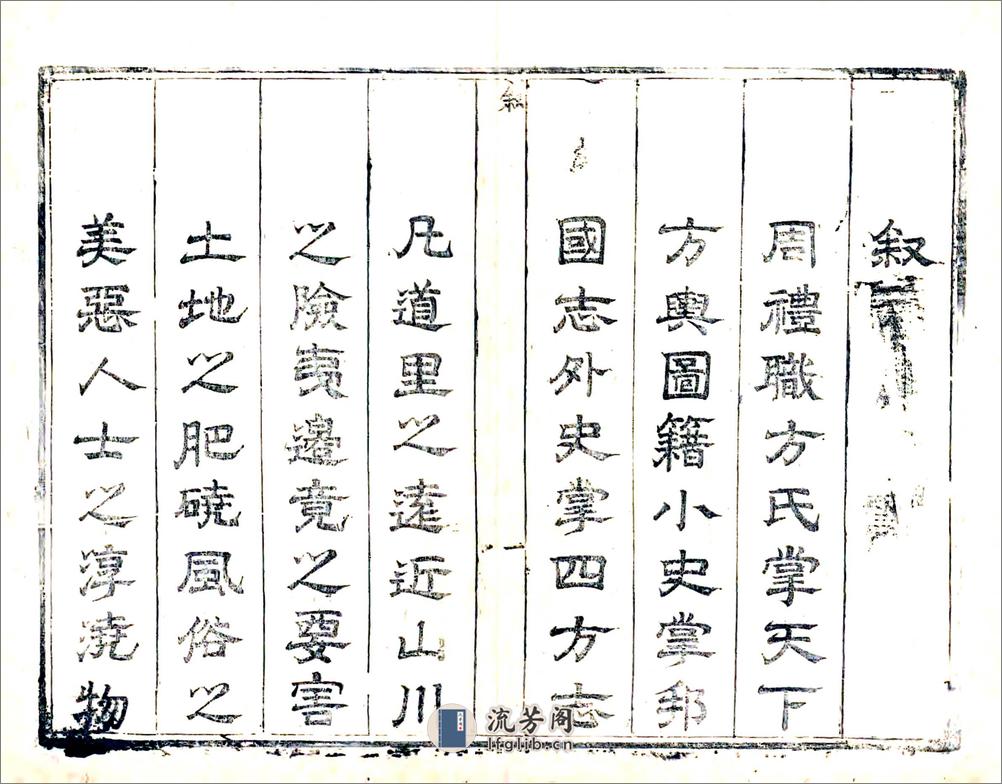 叙
周禮職方氏掌天下
方輿圖籍小史掌邦
國志外史掌四方志
叙
一
凡道里之遠近山川
之險夷邊竟之要害
土地之肥磽風俗之
美惡人士之淳澆物
流芳阁
lfglib.cn